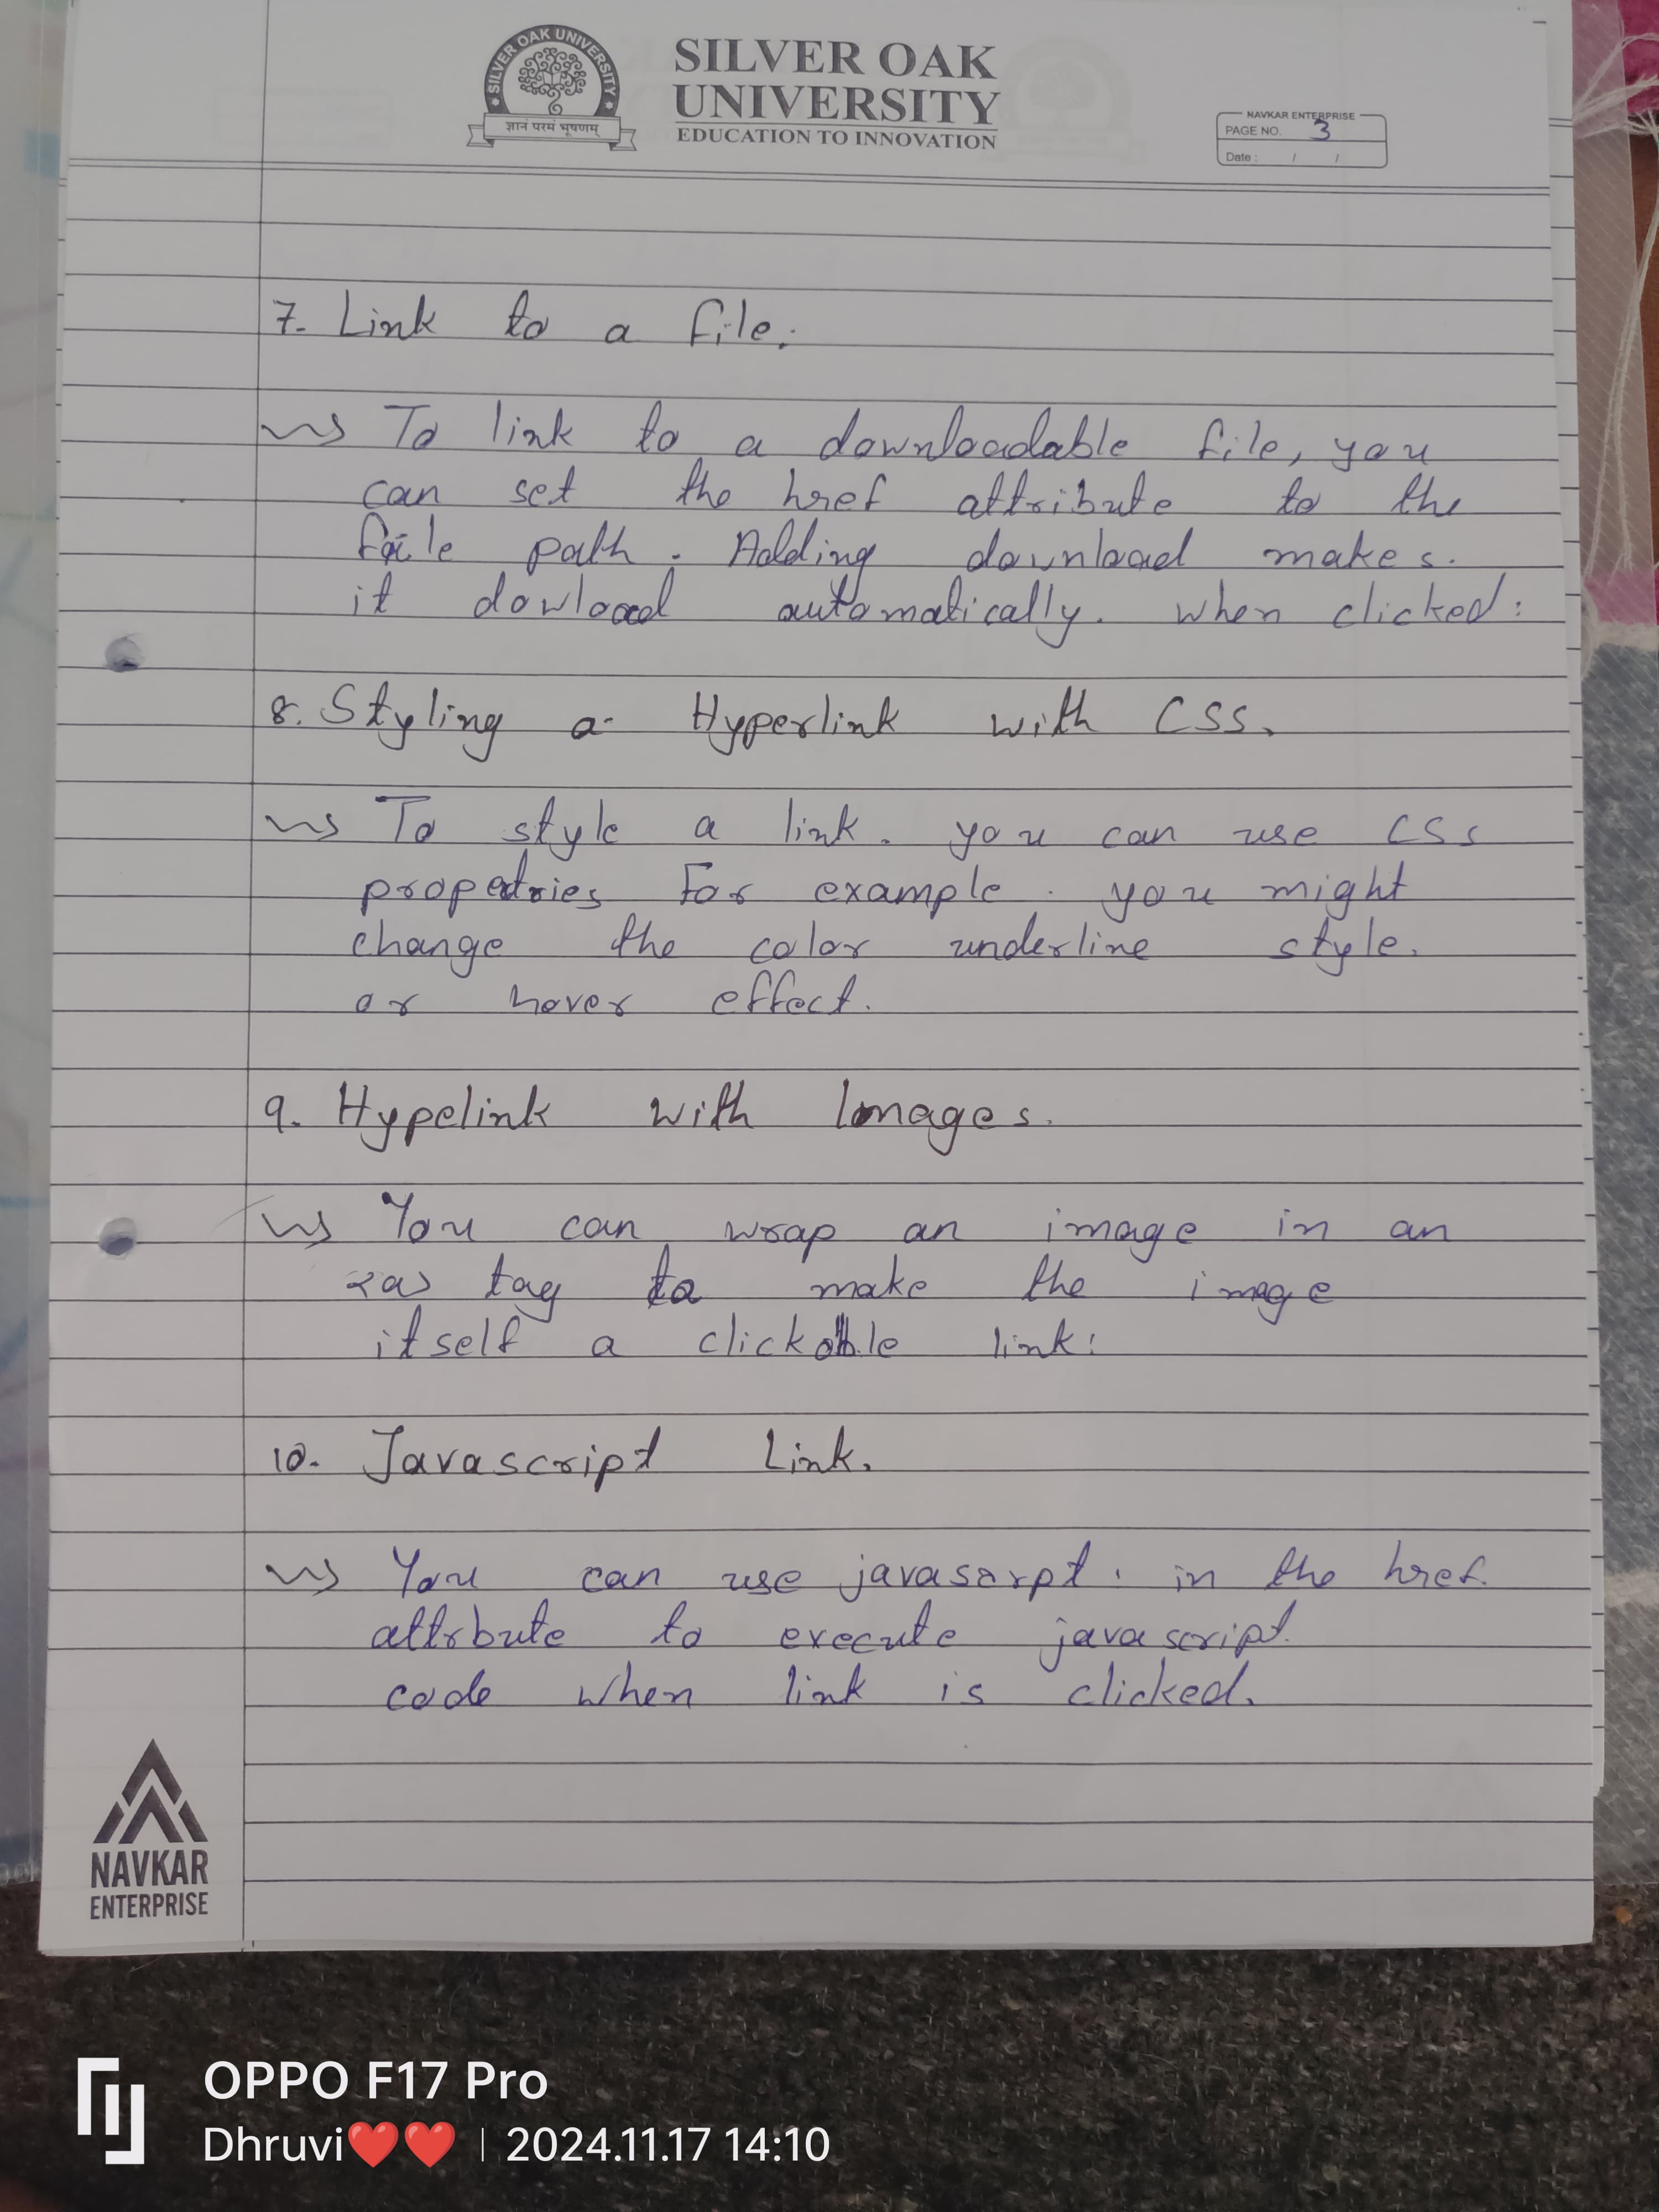 SILVER OAK UNIVERSITY
ज्ञानं परमं भूषणम्
SILVER OAK
UNIVERSITY
EDUCATION TO INNOVATION
NAVKAR ENTERPRISE
PAGE NO. 3
Date : / /
7. Link to a file.
To link to a downloadable file, you
can set the href attribute to the
file path. Adding download makes.
it dowload automatically. when clicked:
8. Styling a Hyperlink with CSS.
To style a link. you can use CSS
propetries For example. you might
change the color underline style.
or hover effect.
9. Hypelink with Images.
You can wrap an image in an
<a> tag to make the image
itself a clickable link:
10. Javascript Link.
You can use javasarpt. in the href.
attrbute to execute javascript.
code when link is clicked.
NAVKAR
ENTERPRISE
OPPO F17 Pro
Dhruvi❤️❤️ | 2024.11.17 14:10